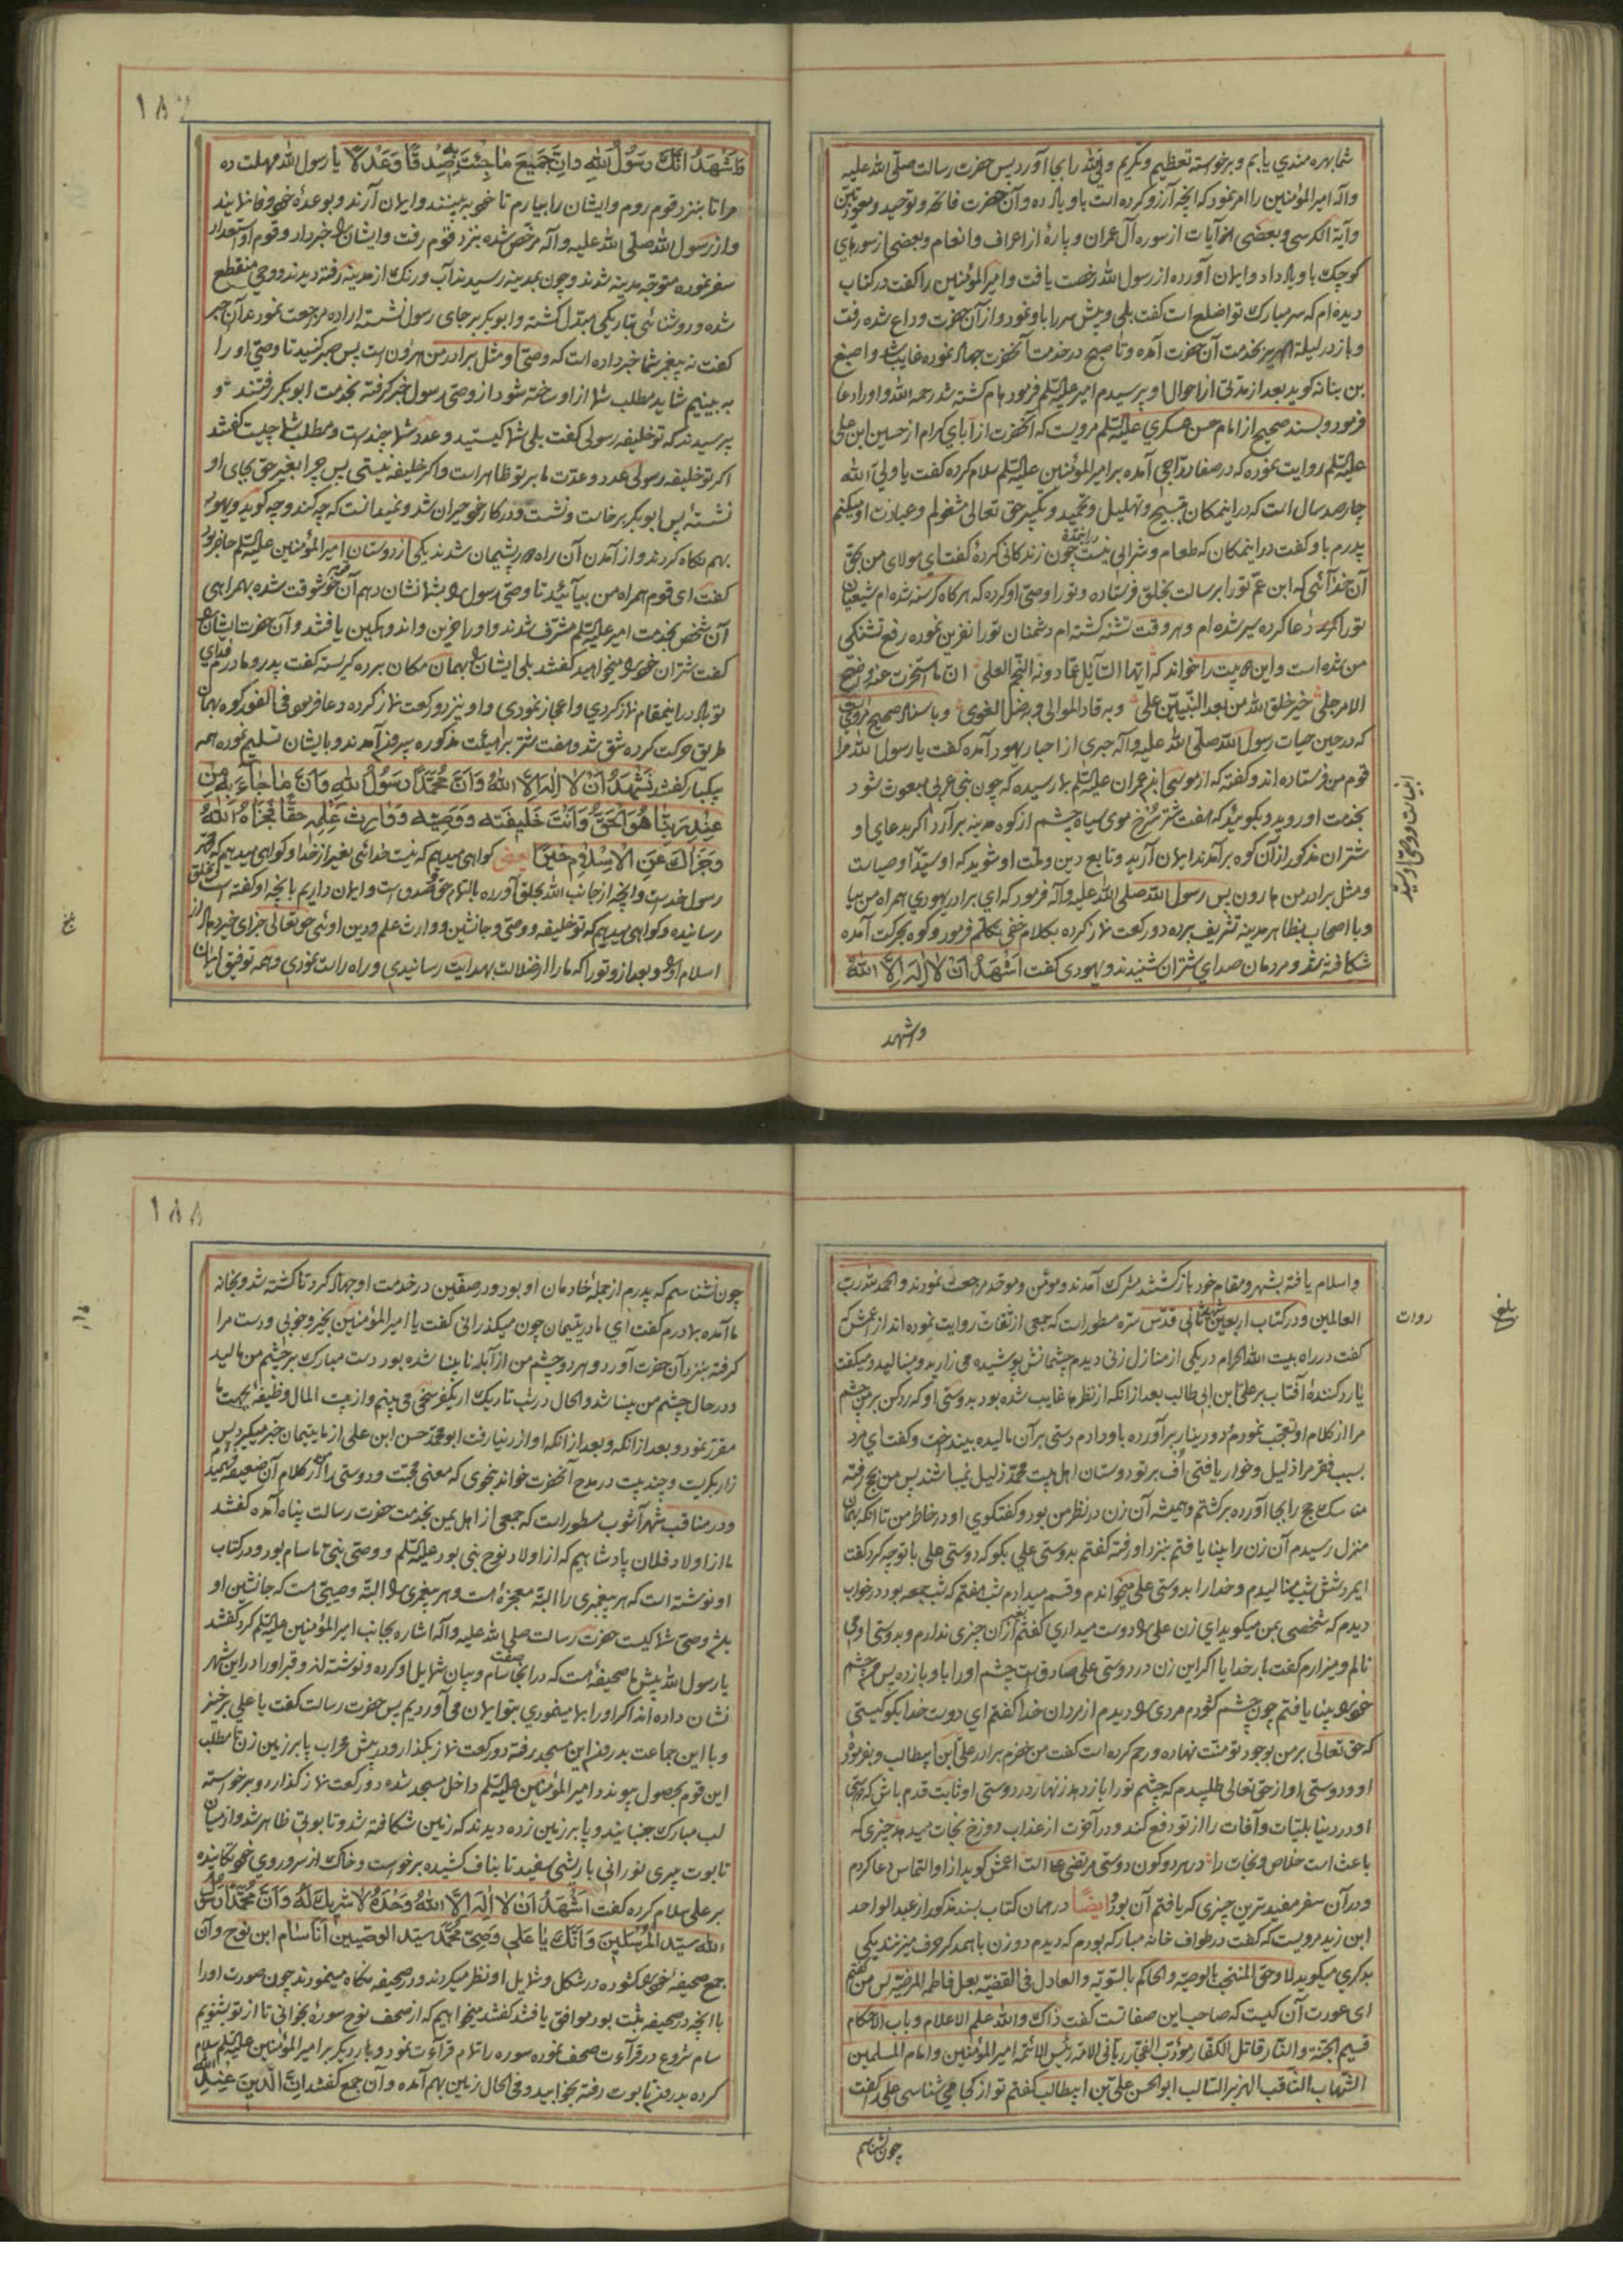 شما بهره مندی یابم و برخواسته تعظیم و تکریم و را بجا آورد پس حضرت رسالت صلی الله علیه
وآله امیرالمؤمنین را امر نمود که آنچه آرزو کرده است باو یاد ده و آن حضرت فاتحه و توحید و معوذتین
وآیة الکرسی و بعضی آیات از سوره آل عمران و پارهٔ از اعراف و انعام و بعضی از سورهای
کوچک باو یاد داد و ایمان آورده از رسول الله رخصت یافت و امیرالمؤمنین را گفت در کتاب
دیده ام که سر مبارک تو اضلع است گفت بلی و پیش سر را باو نمود و از آن حضرت وداع شده رفت
و باز در لیلة الهریر بخدمت آن حضرت آمده و تا صبح در خدمت آنحضرت جهاد نموده غایب شد و اصبغ
بن بناته کوید بعد از مدتی از احوال او پرسیدم امیر علیه السلم فرمود هام کشته شد رحمه الله و او را دعا
فرمود و بسند صحیح از امام حسن عسکری علیه السلم مرویست که آنحضرت از آبای کرام از حسین ابن علی
علیه السلم روایت نموده که در صفا دراجی آمده بر امیرالمؤمنین علیه السلم سلام کرده گفت یا ولی الله
چارصد سال است که در اینمکان بتسبیح و تهلیل و تحمید و تکبیر حق تعالی مشغولم و عبادت او میکنم
پدرم باو گفت در اینمکان که طعام و شرابی نیست چون زندکانی کردهٔ گفت ای مولای من بحق
آن خدائی که ابن عم تو را برسالت بخلق فرستاده و تو را وصی او کرده که هرکاه کرسنه شده ام شیعیان
تو را دعا کرده سیر شده ام و هر وقت تشنه کشته ام دشمنان تو را نفرین نموده رفع تشنکی
من شده است و این بیت را خواند که ایها السآیل عما دونه النجم العلی ان ما استخبرت عنه واضح
الامر جلی خیر خلق الله من بعد النبیین علی و به قاد الموالی و به ضل الغوی و باسناد صحیح مرویست
که در حین حیات رسول الله صلی الله علیه وآله حبری از احبار یهود آمده گفت یا رسول الله مرا
قوم من فرستاده اند و گفته که از موسی بن عمران علیه السلم بما رسیده که چون نبی عربی مبعوث شود
بخدمت او روید و بکویید که هفت شتر سرخ موی سیاه چشم از کوه مدینه برآرد اکر بدعای او
شتران مذکور از آن کوه برآمدند ایمان آرید و تابع دین و ملت او شوید که او سید اوصیاست
و مثل برادر من هارون پس رسول الله صلی الله علیه وآله فرمود که ای برادر یهودی همراه من بیا
و با اصحاب بظاهر مدینه تشریف برده دو رکعت نماز کرده بکلام خفی تکلم فرمود و کوه بحرکت آمده
شکافته شد و مردمان صدای شتران شنیدند و یهودی گفت اشهد ان لا اله الا الله
واشهد
۱۸۷
واشهد انک رسول الله وان جمیع ما جئت به صدقا وعدلا یا رسول الله مهلت ده
مرا تا بنزد قوم روم و ایشان را بیارم تا خود ببینند و ایمان آرند و بوعدهٔ خود وفا نمایند
و از رسول الله صلی الله علیه وآله مرخص شده بنزد قوم رفت و ایشان را خبر داد و قوم او استعداد
سفر نموده متوجه مدینه شدند و چون بمدینه رسیدند آب و رنک از مدینه رفته دیدند و وحی منقطع
شده و روشنائی بتاریکی مبدل کشته و ابوبکر بر جای رسول نشسته اراده مراجعت نمودند آن حبر
گفت نه پیغمبر شما خبر داده است که وصی او مثل برادر من هارون است پس صبر کنید تا وصی او را
به بینیم شاید مطلب شما از او ساخته شود از وصی رسول خبر کرفته بخدمت ابوبکر رفتند و
پرسیدند که تو خلیفه رسولی گفت بلی شما کیستید و عدد شما چندست و مطلب شما چیست گفتند
اکر تو خلیفه رسولی عدد و عدت ما بر تو ظاهر است و اکر خلیفه نیستی پس چرا بغیر حق بجای او
نشستهٔ پس ابوبکر برخاست و نشست و در کار خود حیران شد و نمیدانست که چه کند و چه کوید و یهود
بهم نکاه کردند و از آمدن آن راه دور پشیمان شدند یکی از دوستان امیرالمؤمنین علیه السلم حاضر بود
گفت ای قوم همراه من بیآئید تا وصی رسول را بشما نشان دهم آن قوم خوشوقت شده بهمراهی
آن شخص بخدمت امیر علیه السلم مشرف شدند و او را حزین و اندوهکین یافتند و آن حضرت ایشان را
گفت شتران خود را میخواهید گفتند بلی ایشان را بهمان مکان برده کریسته گفت پدر و مادرم فدای
تو باد در اینمقام نماز کردی و اعجاز نمودی و او نیز دو رکعت نماز کرده دعا فرمود فی الفور کوه بهمان
طریق حرکت کرده شق شد و هفت شتر بر آن هیئت مذکوره بیرون آمدند و بایشان تسلیم نموده همه
بیکبار گفتند نشهد ان لا اله الا الله وان محمدا رسول الله وان ما جاء به من
عند ربنا هو الحق وانت خلیفته ووصیه ووارث علمه حقا فجزاه الله
وجزاک عن الاسلام خیرا یعنی کواهی میدهیم که نیست خدائی بغیر از خدا و کواهی میدهیم که محمد
رسول خداست و آنچه از جانب الله بخلق آورده بالتمام حق و صدق است و ایمان داریم بآنچه او گفته است بخلق
رسانیده و کواهی میدهیم که تو خلیفه و وصی و جانشین و وارث علم و دین اوئی حق تعالی جزای خیر دهاد از
اسلام او را و بعد از او تو را که ما را از ضلالت بهدایت رسانیدی و راه راست نمودی و همه توفیق ایمان
و اسلام یافته بشهر و مقام خود بازکشتند مشرک آمدند و مؤمن و موحد مراجعت نمودند والحمد لله رب
العالمین و در کتاب اربعین شیخ ثانی قدس سره مسطور است که جمعی از ثقات روایت نموده اند از اعمش که
گفت در راه بیت الله الحرام در یکی از منازل زنی دیدم چشمانش پوشیده می زارید و مینالید و میکفت
یا رد کنندهٔ آفتاب بر علی ابن ابی طالب بعد از آنکه از نظرها غایب شده بود بدوستی او که رد کن بر من چشم
مرا از کلام او تعجب نمودم دو دینار برآورده باو دادم دستی بر آن مالیده بینداخت و گفت ای مرد
بسبب فقر مرا ذلیل و خوار یافتی اف بر تو دوستان اهل بیت محمد ذلیل نمیباشند پس من بحج رفته
مناسک حج را بجا آورده برکشتم و همیشه آن زن در نظر من بود و گفتکوی او در خاطر من تا آنکه بهمان
منزل رسیدم آن زن را بینا یافتم بنزد او رفته گفتم بدوستی علی بکو که دوستی علی با تو چه کرد گفت
ایمرد شش شب مینالیدم و خدا را بدوستی علی میخواندم و قسم میدادم شب هفتم که شب جمعه بود در خواب
دیدم که شخصی بمن میکوید ای زن علی را دوست میداری گفتم بغیر از آن چیزی ندارم و بدوستی او می
نالم و میزارم گفت بار خدایا اکر این زن در دوستی علی صادق است چشم او را باو باز ده پس هر دو چشم
خود را بینا یافتم چون چشم کشودم مردی را دیدم از مردان خدا گفتم ای دوست خدا بکو کیستی
که حق تعالی بر من بوجود تو منت نهاده و رحم کرده است گفت من خضرم برادر علی ابن ابیطالب و بفرمودهٔ
او و دوستی او از حق تعالی طلبیدم که چشم تو را باز دهد زنهار در دوستی او ثابت قدم باش که دوستی
او در دنیا بلیات و آفات را از تو دفع کند و در آخرت از عذاب دوزخ نجات میدهد چیزی که
باعث است خلاص و نجات را در هر دو کون دوستی مرتضی علی است اعمش کوید از او التماس دعا کردم
و در آن سفر مفیدترین چیزی که یافتم آن بود ایضا در همان کتاب بسند مذکور از عبد الواحد
ابن زید مرویست که گفت در طواف خانه مبارکه بودم که دیدم دو زن با همدکر حرف میزنند یکی
بدکری میکوید لا وحق المنتخب بالوصیه والحاکم بالسویه والعادل فی القضیه بعل فاطمه المرضیه پس من گفتم
ای عورت آن کیست که صاحب این صفاتست گفت ذاک والله علم الاعلام وباب الاحکام
قسیم الجنة والنار قاتل الکفار مؤدب الفجار ربانی الامه رئیس الائمه امیرالمؤمنین وامام المسلمین
الشهاب الثاقب الهزبر السالب ابوالحسن علی بن ابیطالب گفتم تو از کجا می شناسی علی را گفت
روات
چون نشناسم
۱۸۸
چون نشناسم که پدرم از جملهٔ خادمان او بود و در صفین در خدمت او جهاد کرد تا کشته شد و بخانه
ما آمده بمادرم گفت ای مادر یتیمان چون میکذرانی گفت یا امیرالمؤمنین بخیر و خوبی و دست مرا
کرفته بنزد آن حضرت آورد و هر دو چشم من از آبله نابینا شده بود دست مبارک بر چشم من مالید
و در حال چشم من بینا شد و الحال در شب تاریک از یکفرسخی می بینم و از بیت المال وظیفهٔ بجهت ما
مقرر نمود و بعد از آنکه و بعد از آنکه او از دنیا رفت ابو محمد حسن ابن علی از ما یتیمان خبر میکیرد پس
زار بکریست و چند بیت در مدح آنحضرت خواند بنحوی که معنی محبت و دوستی را من از کلام آن ضعیفه فهمیدم
و در مناقب شهرآشوب مسطور است که جمعی از اهل یمن بخدمت حضرت رسالت پناه آمده گفتند
ما از اولاد فلان پادشاهیم که از اولاد نوح نبی بود علیه السلم و وصی نبی ما سام بود و در کتاب
او نوشته است که هر پیغمبری را البته معجزهٔ است و هر پیغمبری را البته وصیی است که جانشین او
باشد وصی شما کیست حضرت رسالت صلی الله علیه وآله اشاره بجانب امیرالمؤمنین علیه السلم کرد گفتند
یا رسول الله پیش ما صحیفهٔ است که در آنجا صفت سام و بیان شمایل او کرده و نوشته اند و قبر او را در این شهر
نشان داده اند اکر او را بما مینمودی بتو ایمان می آوردیم پس حضرت رسالت گفت یا علی برخیز
و با این جماعت بدرون این مسجد رفته دو رکعت نماز بکذار و در پیش محراب پا بر زمین زن تا مطلب
این قوم بحصول پیوندد امیرالمؤمنین علیه السلم داخل مسجد شده دو رکعت نماز کذارد و برخواسته
لب مبارک جنبانید و پا بر زمین زده دیدند که زمین شکافته شد و تابوتی ظاهر شد و از میان
تابوت پیری نورانی با ریشی سفید تا بناف کشیده برخواست و خاک از سر و روی خود تکانیده
بر علی سلام کرده گفت اشهد ان لا اله الا الله وحده لا شریک له وان محمدا رسول
الله سید المرسلین وانک یا علی وصی محمد سید الوصیین انا سام ابن نوح و آن
جمع صحیفه خود را کشوده در شکل و شمایل او نظر میکردند و در صحیفه نکاه مینمودند چون صورت او را
با آنچه در صحیفه ثبت بود موافق یافتند گفتند میخواهیم که از صحف نوح سورهٔ بخوانی تا از تو بشنویم
سام شروع در قرآءت صحف نموده سوره را تمام قرآءت نمود و بار دیکر بر امیرالمؤمنین علیه السلم سلام
کرده بدرون تابوت رفته بخوابید و فی الحال زمین بهم آمده و آن جمع گفتند ان الدین عند الله